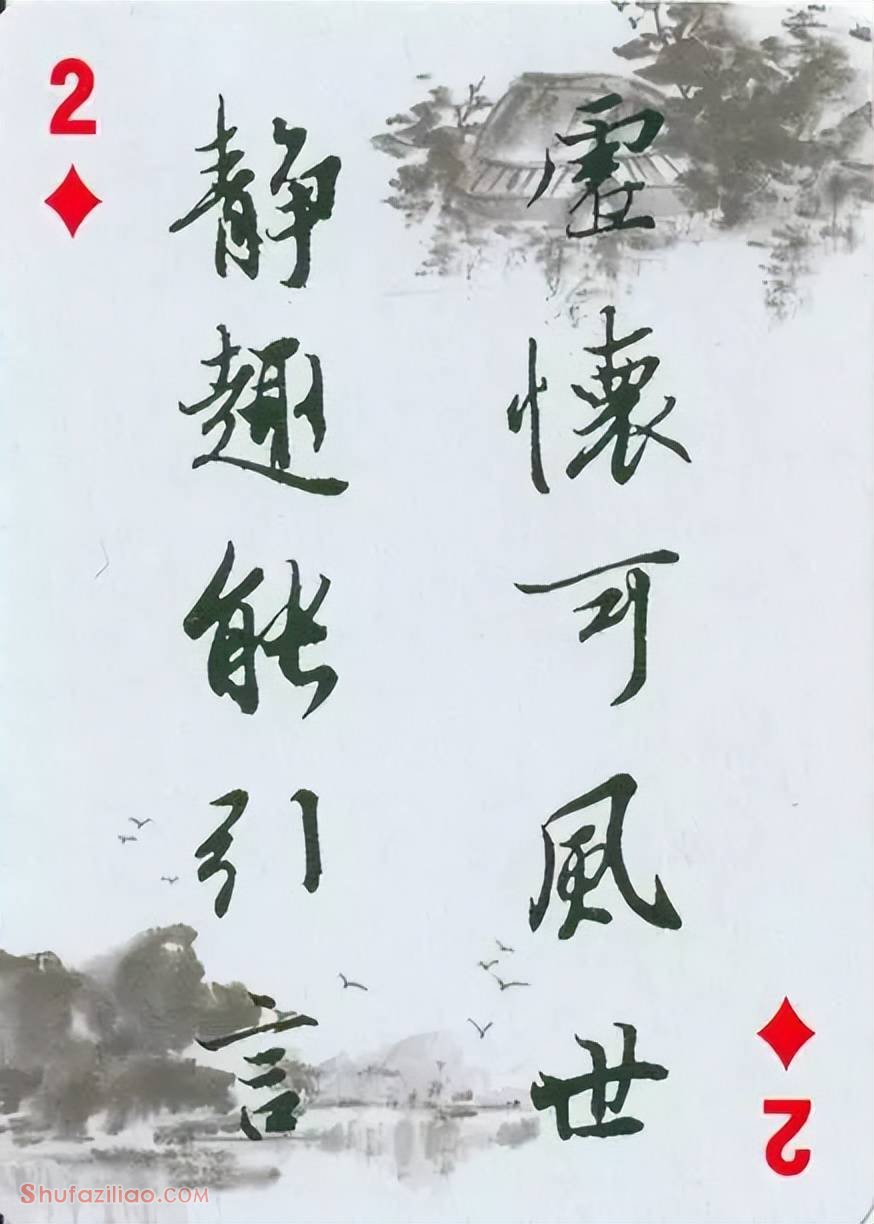 2
虛懷可風世
静趣能引言
2
Shufaziliao.COM